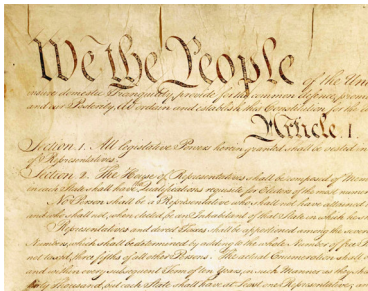 We the People of the Uni
insure domestic Tranquility, provide for the common defence, promo
and our Posterity, do ordain and establish this Constitution for the U
Article. I.
Section. 1. All legislative Powers herein granted shall be vested in
of Representatives.
Section. 2. The House of Representatives shall be composed of Mem
in each State shall have the Qualifications requisite for Electors of the most numero
No Person shall be a Representative who shall not have attained
and who shall not, when elected, be an Inhabitant of that State in which he s
Representatives and direct Taxes shall be apportioned among the severa
Numbers, which shall be determined by adding to the whole Number of free P
not taxed, three fifths of all other Persons. The actual Enumeration shall
and within every subsequent Term of ten Years, in such Manner as they sha
thirty Thousand, but each State shall have at Least one Representative;